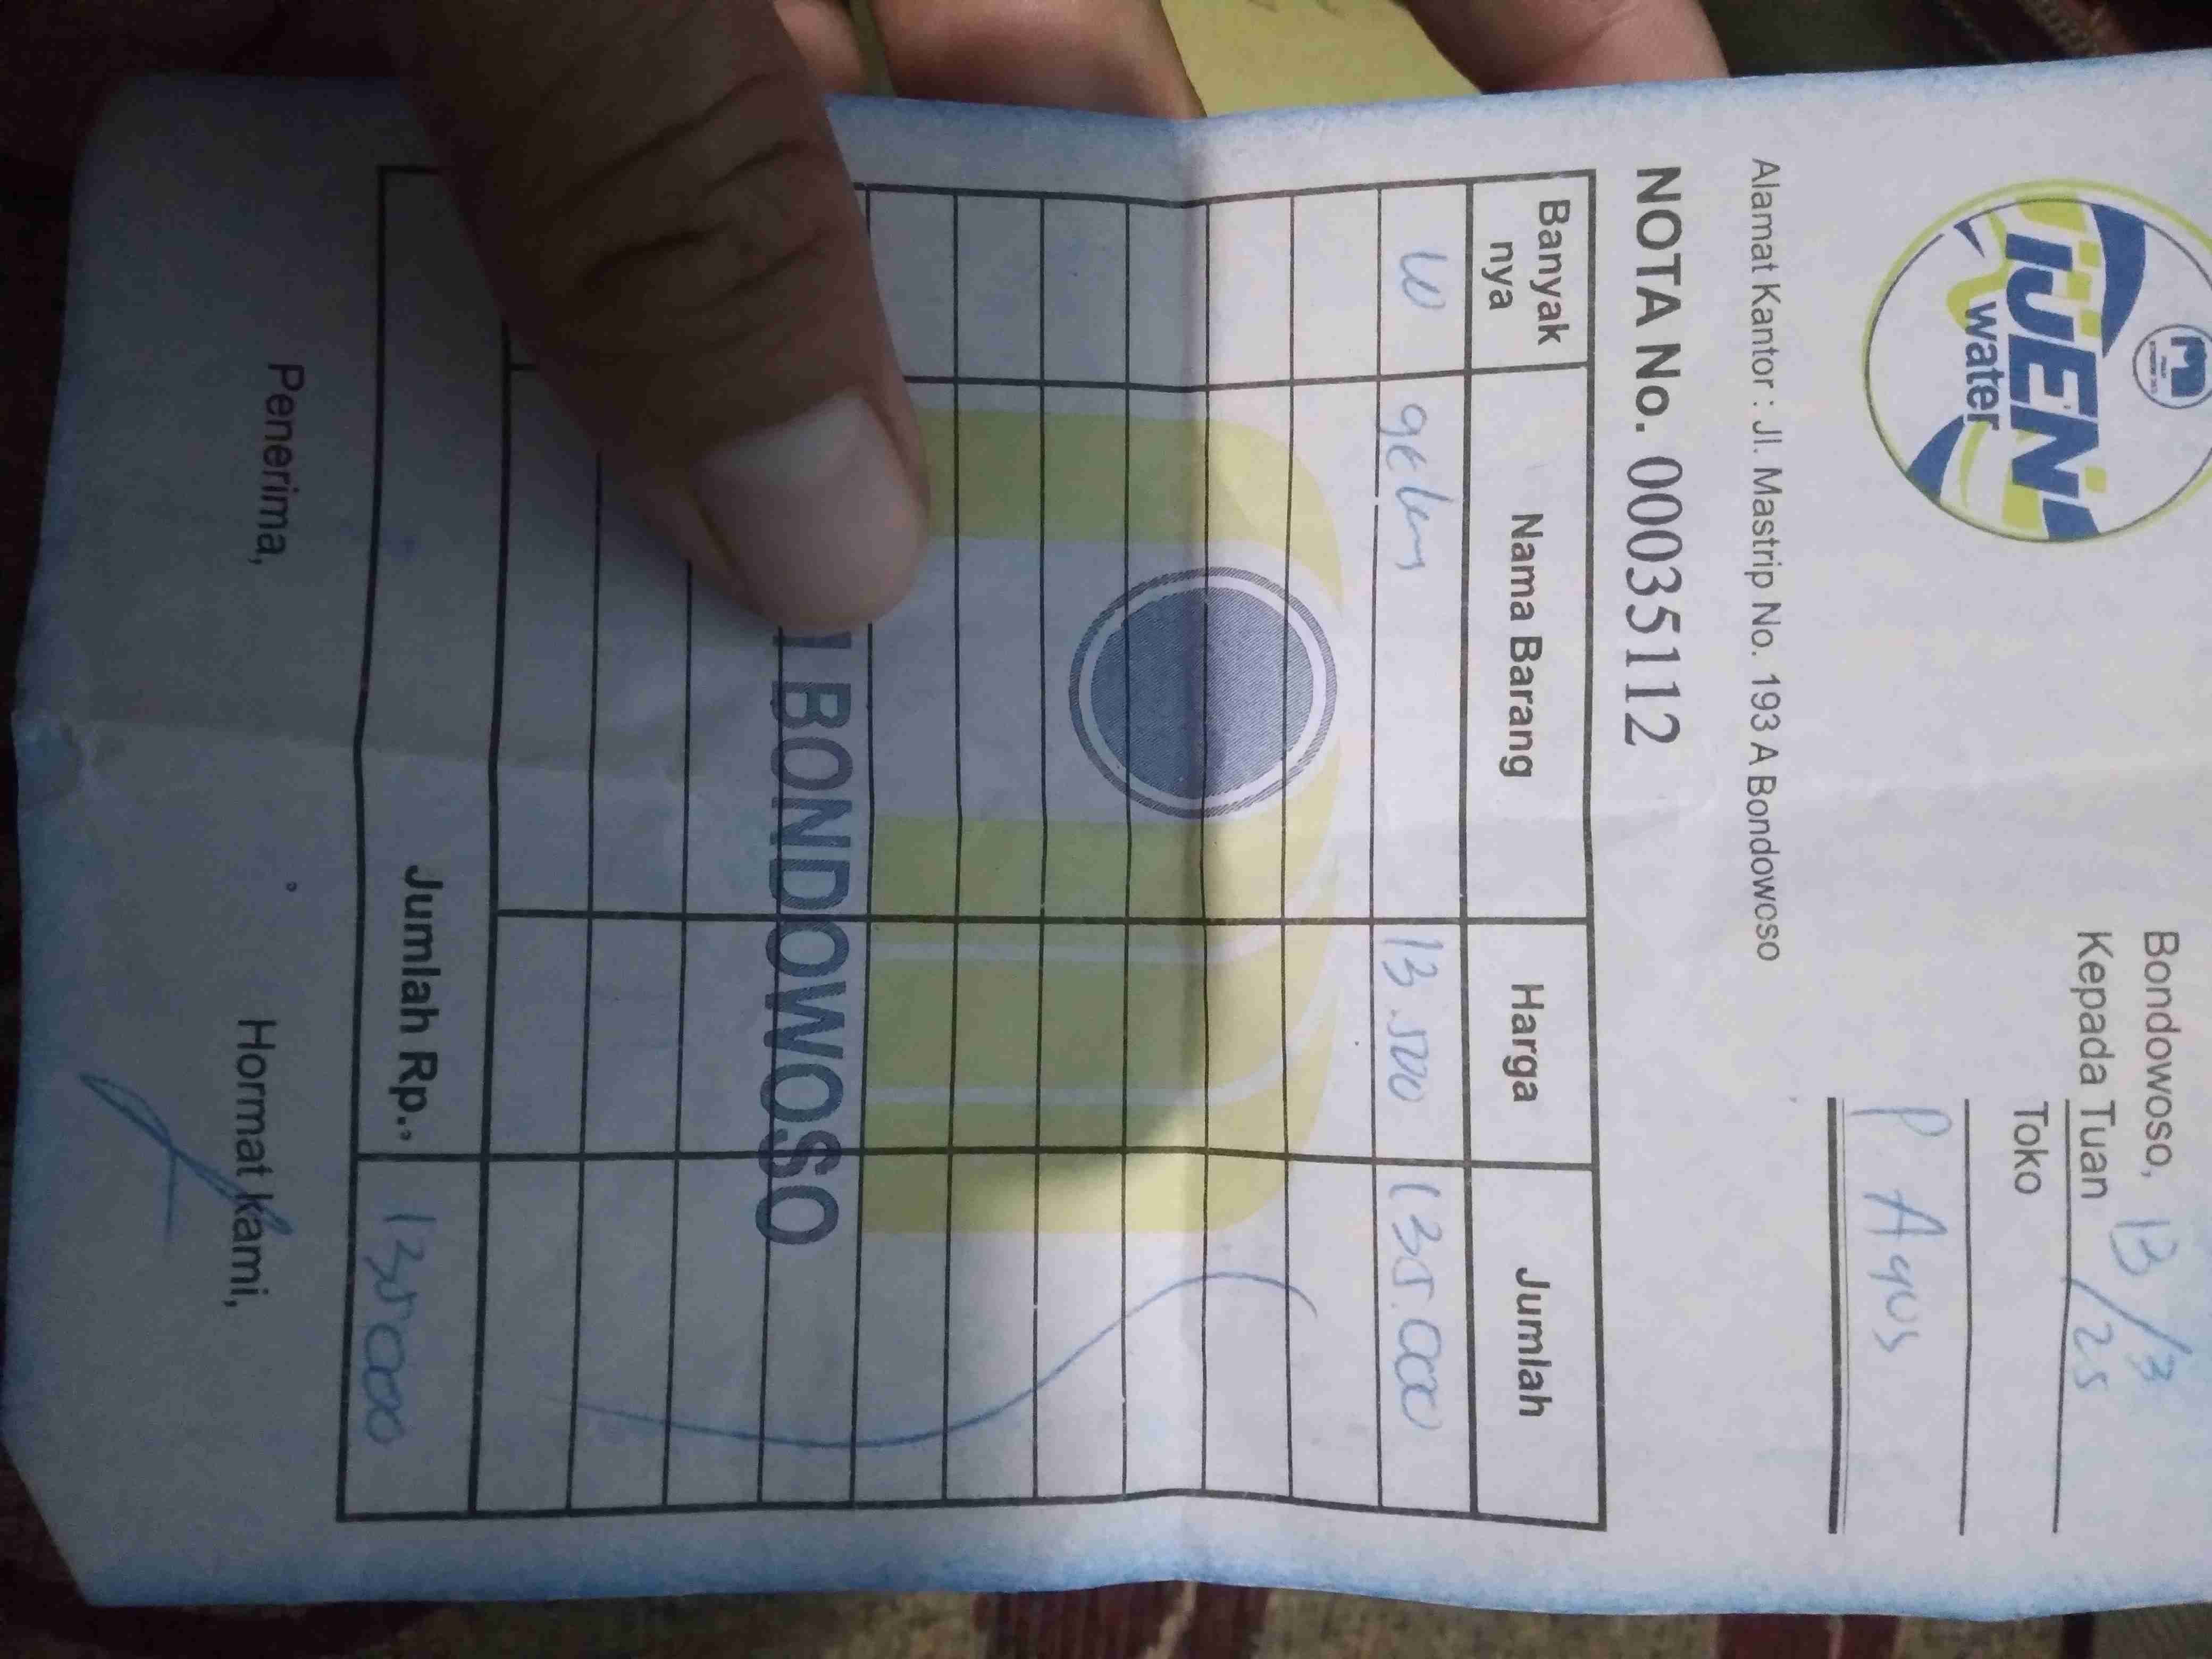 IJEN
water
Bondowoso, 13/3/25
Kepada Tuan
Toko
P Agus
Alamat Kantor : Jl. Mastrip No. 193 A Bondowoso
NOTA No. 00035112
Banyak nya Nama Barang Harga Jumlah
10 13.500 135.000
BONDOWOSO
Jumlah Rp.. 135000
Penerima, Hormat kami,